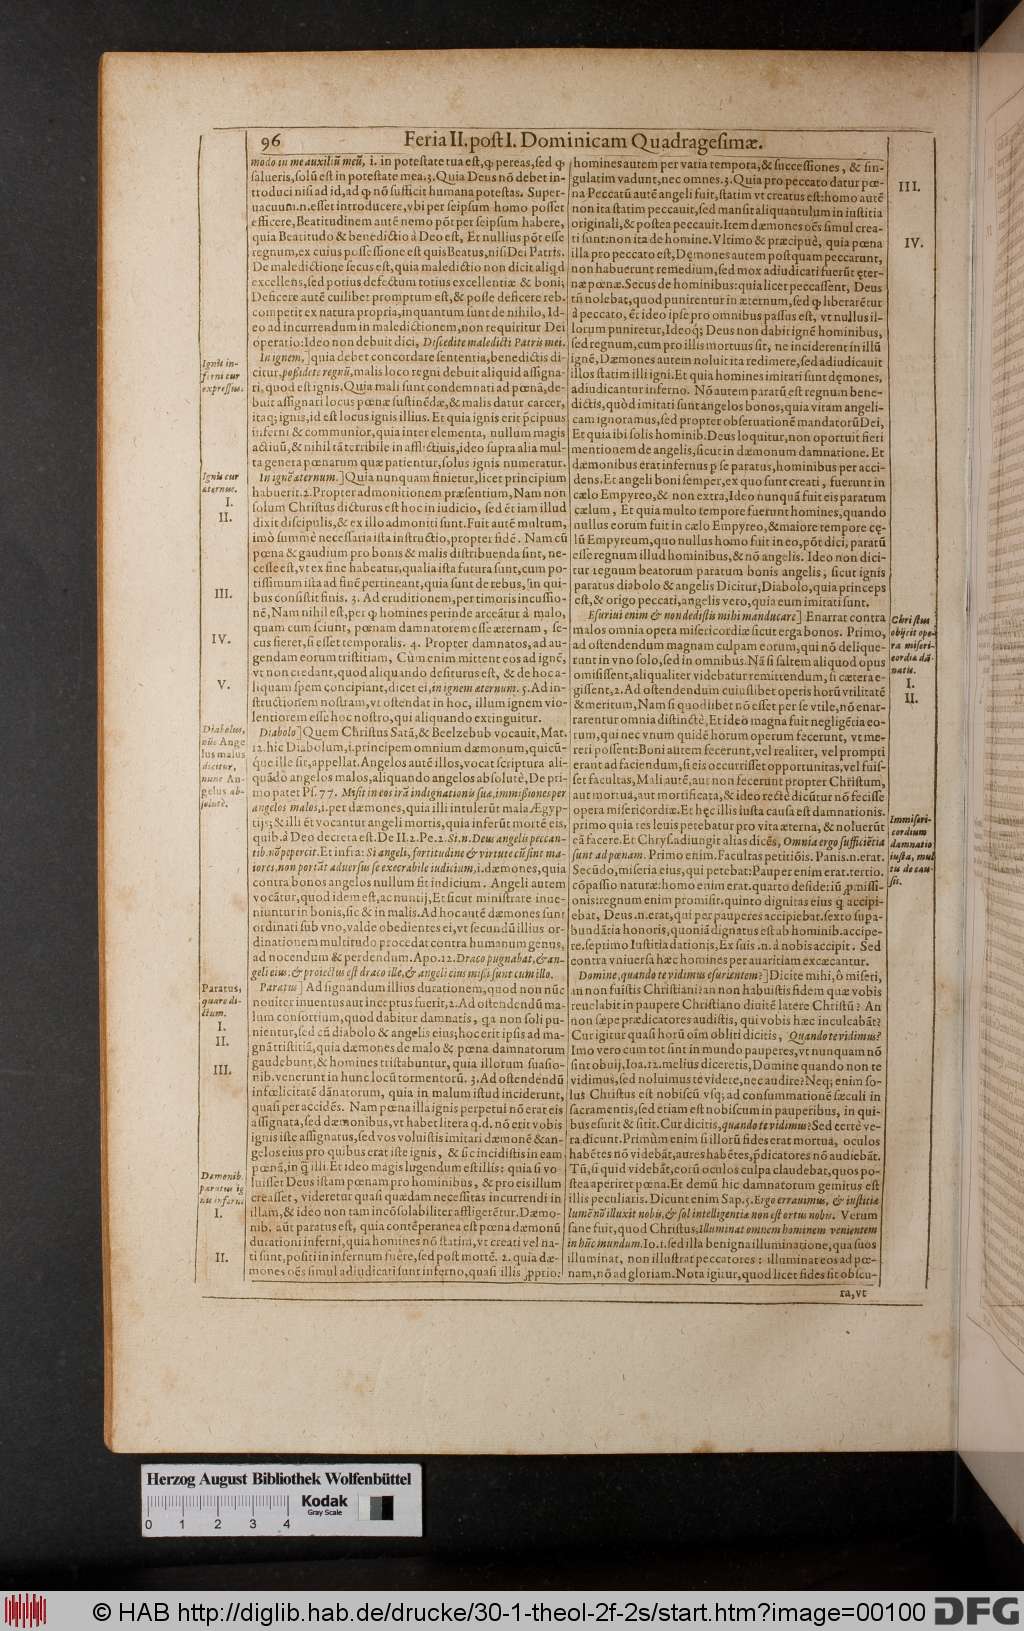 96
Feria II. post I. Dominicam Quadragesimæ.
modo in me auxiliũ meũ, i. in potestate tua est, ꝙ pereas, sed ꝙ
salueris, solũ est in potestate mea. 3. Quia Deus nõ debet in-
troduci nisi ad id, ad ꝙ nõ sufficit humana potestas. Super-
uacuum. n. esset introducere, vbi per seipsum homo posset
efficere, Beatitudinem autẽ nemo põt per seipsum habere,
quia Beatitudo & benedictio à Deo est, Et nullius põt esse
regnum, ex cuius possessione est quis Beatus, nisi Dei Patris.
De maledictione secus est, quia maledictio non dicit aliqd
excellens, sed potius defectum totius excellentiæ & boni;
Deficere autẽ cuilibet promptum est, & posse deficere reb.
competit ex natura propria, inquantum sunt de nihilo, Id-
eo ad incurrendum in maledictionem, non requiritur Dei
operatio: Ideo non debuit dici, Discedite maledicti Patris mei.
In ignem,] quia debet concordare sententia, benedictis di-
citur, possidete regnũ, malis loco regni debuit aliquid assigna-
ri, quod est ignis. Quia mali sunt condemnati ad pœnã, de-
buit assignari locus pœnæ sustinẽdæ, & malis datur carcer,
itaq; ignis, id est locus ignis illius. Et quia ignis erit p̃cipuus
inferni & communior, quia inter elementa, nullum magis
actiuũ, & nihil tã terribile in afflictiuis, ideo supra alia mul-
ta genera pœnarum quæ patientur, solus ignis numeratur.
In ignẽ æternum.] Quia nunquam finietur, licet principium
habuerit. 2. Propter admonitionem præsentium, Nam non
solum Christus dicturus est hoc in iudicio, sed ẽt iam illud
dixit discipulis, & ex illo admoniti sunt. Fuit autẽ multum,
imò summè necessaria ista instructio, propter fidẽ. Nam cũ
pœna & gaudium pro bonis & malis distribuenda sint, ne-
cesse est, vt ex fine habeatur, qualia ista futura sunt, cum po-
tissimum ista ad finẽ pertineant, quia sunt de rebus, in qui-
bus consistit finis. 3. Ad eruditionem, per timoris incussio-
nẽ, Nam nihil est, per ꝙ homines perinde arceãtur à malo,
quam cum sciunt, pœnam damnatorem esse æternam, se-
cus fieret, si esset temporalis. 4. Propter damnatos, ad au-
gendam eorum tristitiam, Cùm enim mittent eos ad ignẽ,
vt non credant, quod aliquando desiturus est, & de hoc a-
liquam spem concipiant, dicet ei, in ignem æternum. 5. Ad in-
structionem nostram, vt ostendat in hoc, illum ignem vio-
lentiorem esse hoc nostro, qui aliquando extinguitur.
Diabolo] Quem Christus Satã, & Beelzebub vocauit, Mat.
12. hic Diabolum, i. principem omnium dæmonum, quicũ-
que ille sit, appellat. Angelos autẽ illos, vocat scriptura ali-
quãdo angelos malos, aliquando angelos absolutè, De pri-
mo patet Ps. 77. Misit in eos irã indignationis suæ, immissiones per
angelos malos, i. per dæmones, quia illi intulerũt mala Ægyp-
tijs; & illi ẽt vocantur angeli mortis, quia inferũt mortẽ eis,
quib. à Deo decreta est. De II. 2. Pe. 2. Si. n. Deus angelis peccan-
tib. nõ pepercit. Et infra: Si angeli, fortitudine & virtute cũ sint ma-
iores, non portãt aduersus se execrabile iudicium, i. dæmones, quia
contra bonos angelos nullum fit iudicium. Angeli autem
vocãtur, quod idem est, ac nuntij, Et sicut ministrate inue-
niuntur in bonis, sic & in malis. Ad hoc autẽ dæmones sunt
ordinati sub vno, valde obedientes ei, vt secundũ illius or-
dinationem multitudo procedat contra humanum genus,
ad nocendum & perdendum. Apo. 12. Draco pugnabat, & an-
geli eius: & proiectus est draco ille, & angeli eius missi sunt cum illo.
Paratus] Ad signandum illius durationem, quod non nũc
nouiter inuentus aut inceptus fuerit, 2. Ad ostendendũ ma-
lum consortium, quod dabitur damnatis, qa non soli pu-
nientur, sed cũ diabolo & angelis eius; hoc erit ipsis ad ma-
gnã tristitiã, quia dæmones de malo & pœna damnatorum
gaudebunt, & homines tristabuntur, quia illorum suasio-
nib. venerunt in hunc locũ tormentorũ. 3. Ad ostendendũ
infœlicitatẽ dãnatorum, quia in malum istud inciderunt,
quasi per accidẽs. Nam pœna illa ignis perpetui nõ erat eis
assignata, sed dæmonibus, vt habet litera q. d. nõ erit vobis
ignis iste assignatus, sed vos voluistis imitari dæmonẽ & an-
gelos eius pro quibus erat iste ignis, & sic incidistis in eam
pœnã, in q̃ illi. Et ideo magis lugendum est illis: quia si vo-
luisset Deus istam pœnam pro hominibus, & pro eis illum
creasset, videretur quasi quædam necessitas incurrendi in
illam, & ideo non tam incõsolabiliter affligerẽtur. Dæmo-
nib. aũt paratus est, quia contẽperanea est pœna dæmonũ
durationi inferni, quia homines nõ statim, vt creati vel na-
ti sunt, positi in infernum fuêre, sed post mortẽ. 2. quia dæ-
mones oẽs simul adiudicati sunt inferno, quasi illis ꝓprio:
homines autem per varia tempora, & successiones, & sin-
gulatim vadunt, nec omnes. 3. Quia pro peccato datur pœ-
na Peccatũ autẽ angeli fuit, statim vt creatus est: homo autẽ
non ita statim peccauit, sed mansit aliquantulum in iustitia
originali, & postea peccauit. Item dæmones oẽs simul crea-
ti sunt: non ita de homine. Vltimo & præcipuè, quia pœna
illa pro peccato est, Dęmones autem postquam peccarunt,
non habuerunt remedium, sed mox adiudicati fuerũt ęter-
næ pœnæ. Secus de hominibus: quia licet peccassent, Deus
tñ nolebat, quod punirentur in æternum, sed ꝙ liberarẽtur
à peccato, ẽt ideo ipse pro omnibus passus est, vt nullus il-
lorum puniretur, Ideoq; Deus non dabit ignẽ hominibus,
sed regnum, cum pro illis mortuus sit, ne inciderent in illũ
ignẽ, Dæmones autem noluit ita redimere, sed adiudicauit
illos statim illi igni. Et quia homines imitati sunt dęmones,
adiudicantur inferno. Nõ autem paratũ est regnum bene-
dictis, quòd imitati sunt angelos bonos, quia vitam angeli-
cam ignoramus, sed propter obseruationẽ mandatorũ Dei,
Et quia ibi solis hominib. Deus loquitur, non oportuit fieri
mentionem de angelis, sicut in dæmonum damnatione. Et
dæmonibus erat infernus p se paratus, hominibus per acci-
dens. Et angeli boni semper, ex quo sunt creati, fuerunt in
cælo Empyreo, & non extra, Ideo nunquã fuit eis paratum
cælum, Et quia multo tempore fuerunt homines, quando
nullus eorum fuit in cælo Empyreo, & maiore tempore cę-
lũ Empyreum, quo nullus homo fuit in eo, põt dici, paratũ
esse regnum illud hominibus, & nõ angelis. Ideo non dici-
tur regnum beatorum paratum bonis angelis, sicut ignis
paratus diabolo & angelis Dicitur, Diabolo, quia princeps
est, & origo peccati, angelis vero, quia eum imitati sunt.
Esuriui enim & non dedistis mihi manducare] Enarrat contra
malos omnia opera misericordiæ sicut erga bonos. Primo,
ad ostendendum magnam culpam eorum, qui nõ delique-
runt in vno solo, sed in omnibus. Nã si saltem aliquod opus
omisissent, aliqualiter videbatur remittendum, si cætera e-
gissent, 2. Ad ostendendum cuiuslibet operis horũ vtilitatẽ
& meritum, Nam si quodlibet nõ esset per se vtile, nõ enar-
rarentur omnia distinctè, Et ideo magna fuit negligẽtia eo-
rum, qui nec vnum quidẽ horum operum fecerunt, vt me-
reri possent: Boni autem fecerunt, vel realiter, vel prompti
erant ad faciendum, si eis occurrisset opportunitas, vel fuis-
set facultas, Mali autẽ, aut non fecerunt propter Christum,
aut mortua, aut mortificata, & ideo rectè dicũtur nõ fecisse
opera misericordiæ. Et hęc illis iusta causa est damnationis.
primo quia res leuis petebatur pro vita æterna, & noluerũt
eã facere. Et Chrys. adiungit alias dicẽs, Omnia ergo sufficiẽtia
sunt ad pœnam. Primo enim. Facultas petitiõis. Panis. n. erat.
Secũdo, miseria eius, qui petebat: Pauper enim erat. tertio.
cõpassio naturæ: homo enim erat. quarto desideriũ ꝓmissi-
onis: regnum enim promisit. quinto dignitas eius q̃ accipi-
ebat, Deus. n. erat, qui per pauperes accipiebat. sexto supa-
bundãtia honoris, quoniã dignatus est ab hominib. accipe-
re. septimo Iustitia dationis, Ex suis. n. à nobis accipit. Sed
contra vniuersa hæc homines per auaritiam excæcantur.
Domine, quando te vidimus esurientem?] Dicite mihi, ô miseri,
an non fuistis Christiani? an non habuistis fidem quæ vobis
reuelabit in paupere Christiano diuitẽ latere Christũ? An
non sæpe prædicatores audistis, qui vobis hæc inculcabãt?
Cur igitur quasi horũ oĩm obliti dicitis, Quando te vidimus?
Imo vero cum tot sint in mundo pauperes, vt nunquam nõ
sint obuij, Ioa. 12. melius diceretis, Domine quando non te
vidimus, sed noluimus te videre, nec audire? Neq; enim so-
lus Christus est nobiscũ vsq; ad consummationẽ sæculi in
sacramentis, sed etiam est nobiscum in pauperibus, in qui-
bus esurit & sitit. Cur dicitis, quando te vidimus? Sed certè ve-
ra dicunt. Primùm enim si illorũ fides erat mortua, oculos
habẽtes nõ videbãt, aures habẽtes, p̃dicatores nõ audiebãt.
Tũ, si quid videbãt, eorũ oculos culpa claudebat, quos po-
stea aperiret pœna. Et demũ hic damnatorum gemitus est
illis peculiaris. Dicunt enim Sap. 5. Ergo errauimus, & iustitiæ
lumẽ nõ illuxit nobis, & sol intelligentiæ non est ortus nobis. Verum
sane fuit, quod Christus, illuminat omnem hominem venientem
in hũc mundum. Io. 1. sed illa benigna illuminatione, qua suos
illuminat, non illustrat peccatores: illuminat eos ad pœ-
nam, nõ ad gloriam. Nota igitur, quod licet fides sit obscu-
ra, vt
Ignis in-
ferni cur
expressus.
Ignis cur
æternus.
I.
II.
III.
IV.
V.
Diabolus,
nũc Ange
lus malus
dicitur,
nunc An-
gelus ab-
solutè.
Paratus,
quare di-
ctum.
I.
II.
III.
Dæmonib.
paratus ig
nis inferni
I.
II.
III.
IV.
Christus
obijcit ope-
ra miseri-
cordiæ dã-
natis.
I.
II.
Immiseri-
cordium
damnatio
iusta, mul
tis de cau-
sis.
Herzog August Bibliothek Wolfenbüttel
Kodak
Gray Scale
0 1 2 3 4
© HAB http://diglib.hab.de/drucke/30-1-theol-2f-2s/start.htm?image=00100
DFG